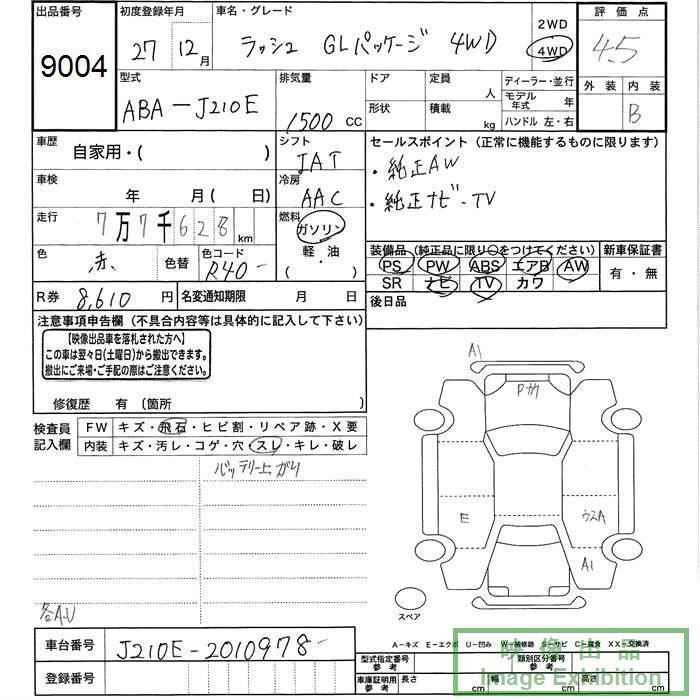 出品番号
9004
初度登録年月
27 12月
車名・グレード
ラッシュ GLパッケージ 4WD
2WD
4WD
評価点
4.5
外装 内装
B
型式
ABA-J210E
排気量
1500 CC
ドア
形状
定員 人
積載 kg
ディーラー・並行
モデル年式 年
ハンドル 左・右
車歴
自家用・( )
シフト
IAT
車検
年 月( 日)
冷房
AAC
走行
7万7千628 km
燃料
ガソリン
軽・油
( )
色
赤
色替
色コード
R40-
R券 8,610 円
名変通知期限 月 日
セールスポイント (正常に機能するものに限ります)
・純正AW
・純正ナビ・TV
装備品 (純正品に限り○をつけてください)
PS PW ABS エアB AW
SR ナビ TV カワ
新車保証書
有・無
後日品
注意事項申告欄 (不具合内容等は具体的に記入して下さい)
【映像出品車を落札された方へ】
この車は翌々日(土曜日)から搬出できます。
搬出にご来場・ご手配の際はご注意ください。
修復歴 有 〔箇所
検査員
記入欄
FW キズ・飛石・ヒビ割・リペア跡・X要
内装 キズ・汚レ・コゲ・穴・スレ・キレ・破レ
バッテリー上がり
各A.U
A1
Pガケ
E
ウスA
A1
スペア
車台番号 J210E-2010978-
登録番号
A-キズ E-エクボ U-凹み W-補修跡 S-サビ C-腐食 XX-交換済
型式指定番号
参考
類別区分番号
参考
車庫証明用
参考
長さ cm
幅 cm
高さ cm
映像出品
Image Exhibition